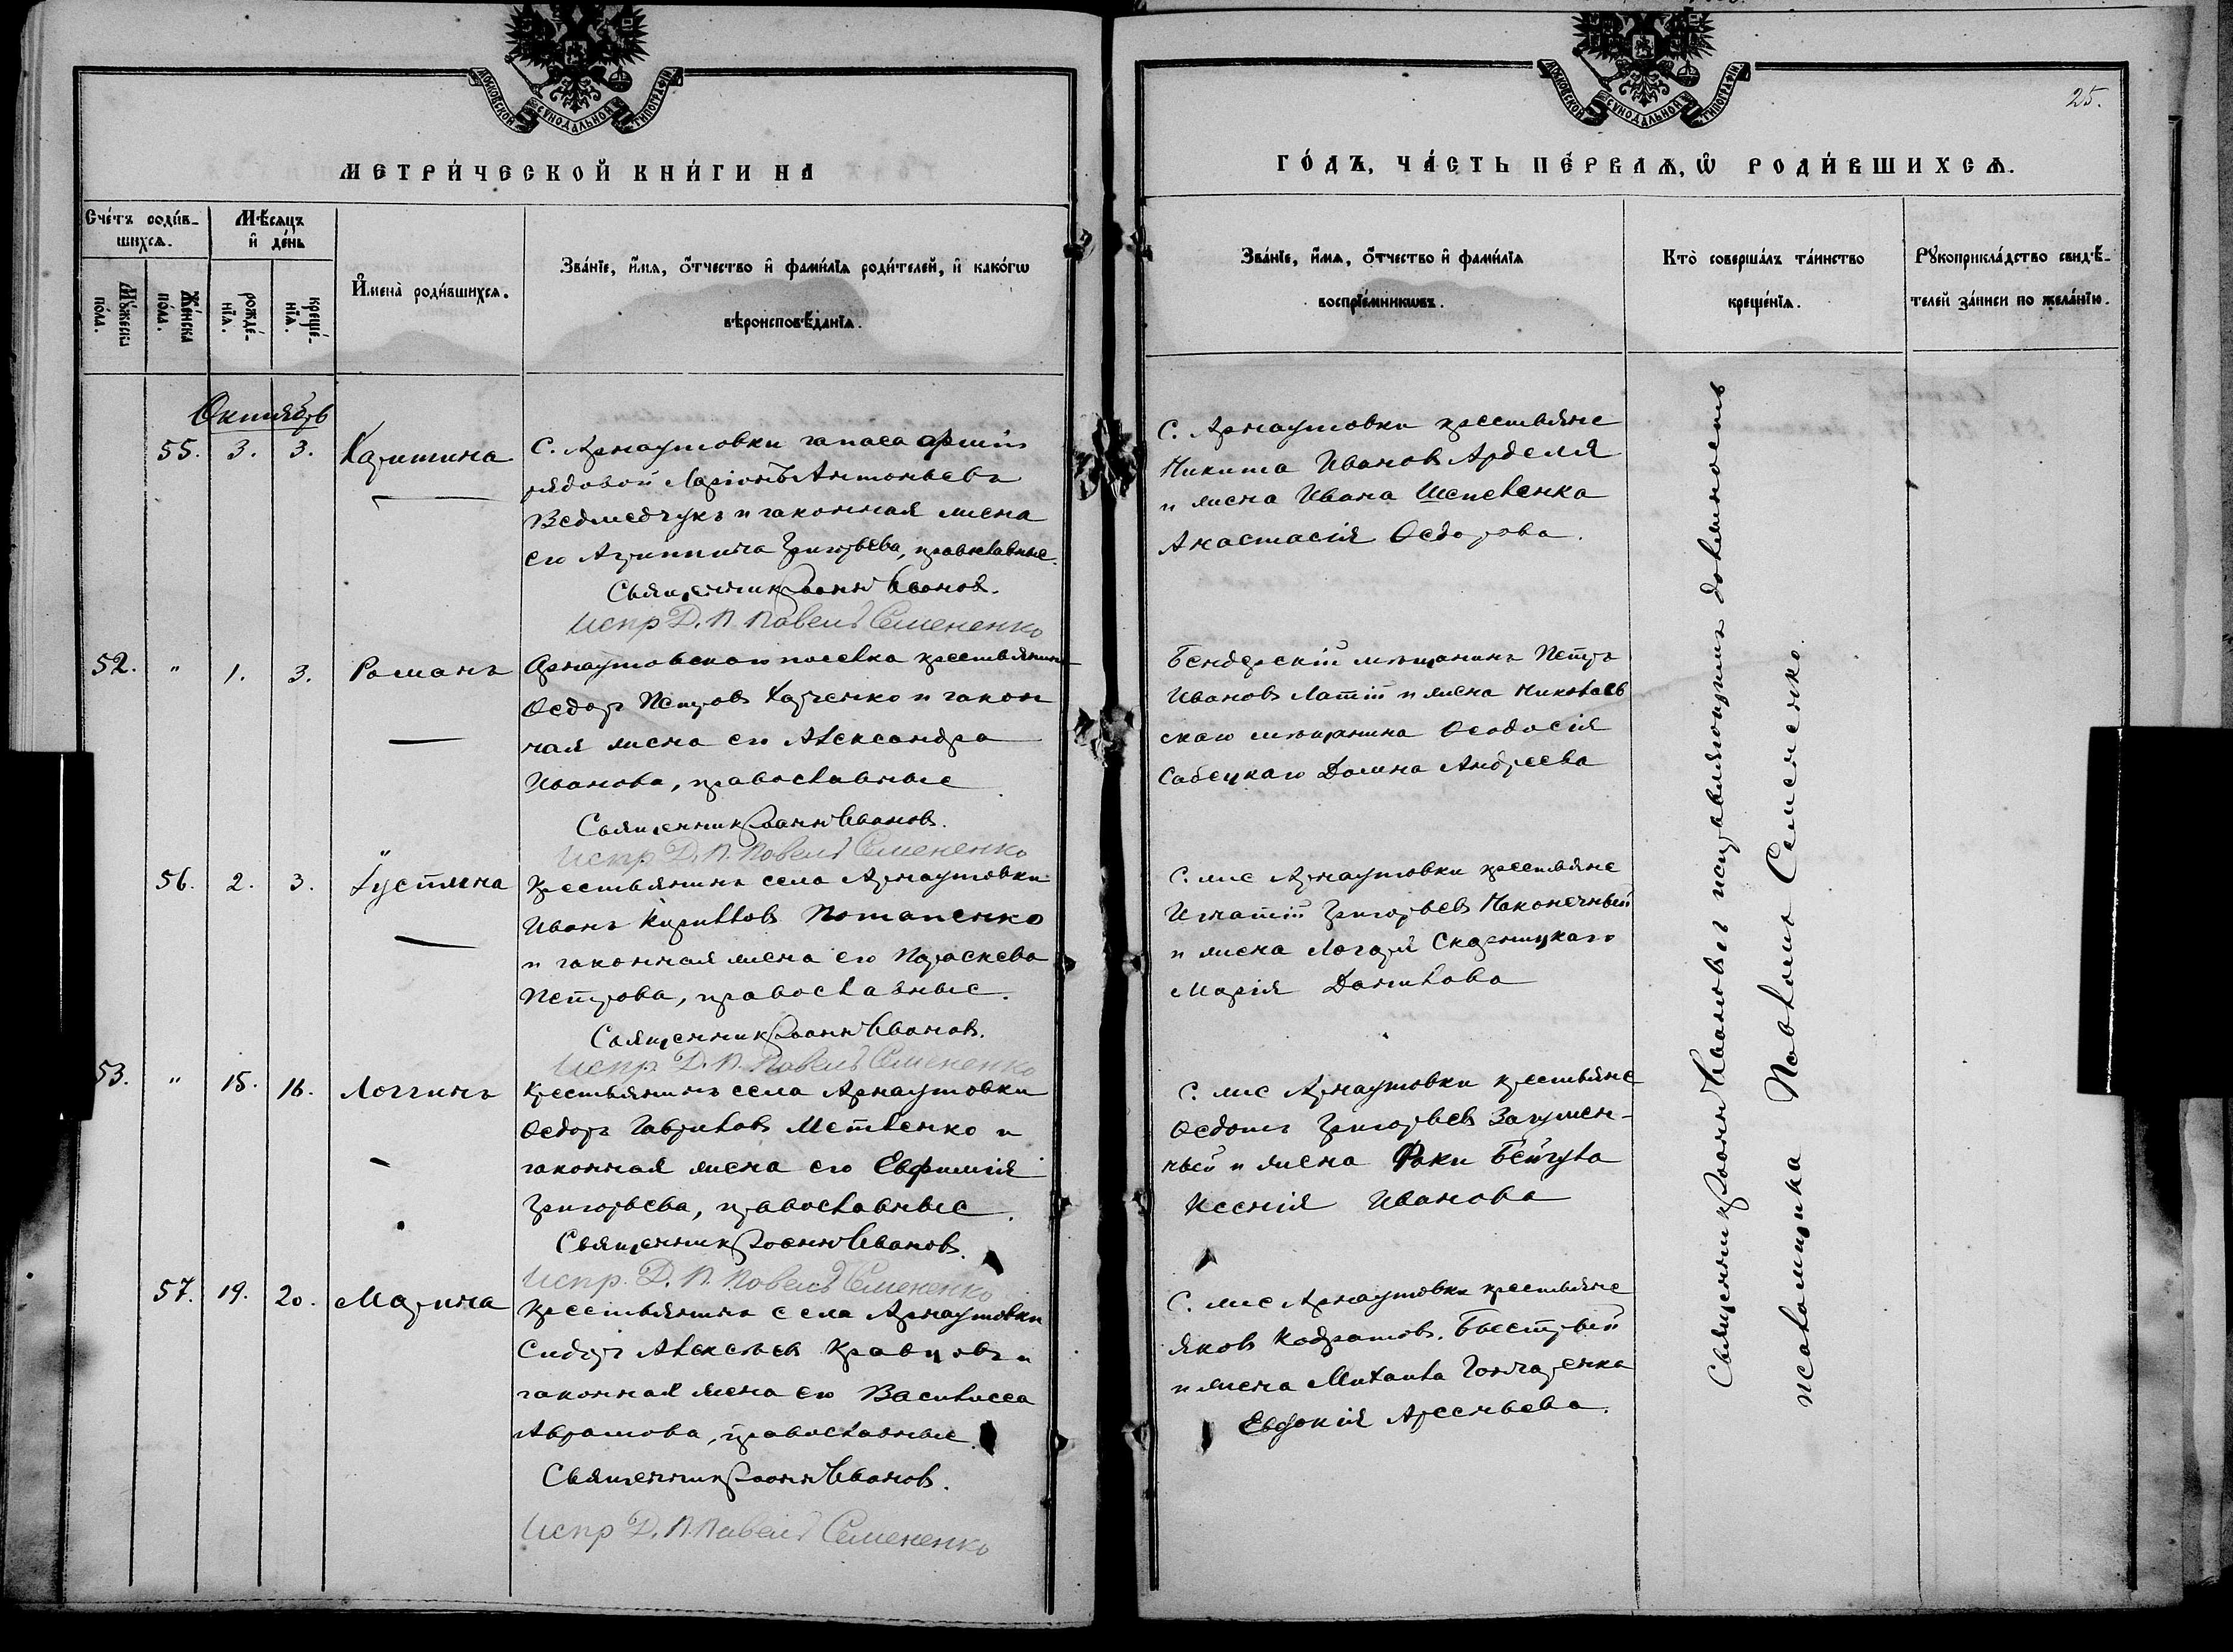 МОСКОВСКОЙ СѴНОДАЛЬНОЙ ТИПОГРАФІИ
МЕТРИ́ЧЕСКОЙ КНИ́ГИ НА
Сче́тъ роди́в-
шихсѧ.
Мѣ́сѧцъ
и҆ де́нь
Мꙋ́жеска
по́ла.
Же́нска
по́ла.
рожде́-
нїѧ.
креще́-
нїѧ.
И҆мена̀ роди́вшихсѧ.
Зва́нїе, и҆́мѧ, ѻ҆́тчество и҆ фами́лїѧ роди́телей, и҆ како́гѡ
вѣроисповѣ́данїѧ.
Октябрь
55. 3. 3. Харитина
С. Арнаутовки запаса арміи
рядовой Ларіонъ Антоньевъ
Ведмедчукъ и законная жена
его Агриппина Григорьева, православные.
Священник Іоанн Иванов.
Испр Д. П. Павелъ Семененко
52. " 1. 3. Романъ
Арнаутовского поселка крестьянинъ
Ѳедоръ Петровъ Харченко и закон
ная жена его Александра
Иванова, православные
Священник Іоанн Иванов.
Испр. Д. П. Павелъ Семененко
56. 2. 3. Іустина
Крестьянинъ села Арнаутовки
Иванъ Кириллов Потапенко
и законная жена его Параскева
Петрова, православные.
Священник Іоанн Иванов.
Испр. Д. П. Павелъ Семененко
53. " 15. 16. Логгинъ
Крестьянинъ села Арнаутовки
Ѳедоръ Гавриловъ Метленко и
законная жена его Евфимія
Григорьева, православные.
Священник Іоанн Иванов.
Испр. Д. П. Павелъ Семененко
57. 19. 20. Марина
Крестьянинъ села Арнаутовки
Сидоръ Алексѣевъ Кравцовъ и
законная жена его Василисса
Аврамова, православные.
Священник Іоанн Иванов.
Испр Д. П. Павелъ Семененко
МОСКОВСКОЙ СѴНОДАЛЬНОЙ ТИПОГРАФІИ
25.
ГО́ДЪ, ЧА́СТЬ ПЕ́РВАѦ, Ѡ҆ РОДИ́ВШИХСѦ.
Зва́нїе, и҆́мѧ, ѻ҆́тчество и҆ фами́лїѧ
воспрїе́мникѡвъ.
Кто̀ соверша́лъ та́инство
креще́нїѧ.
Рꙋкоприкла́дство свидѣ́-
телей за́писи по жела́нїю.
С. Арнаутовки крестьяне
Никита Иванов Арделя
и жена Ивана Шепеленка
Анастасія Ѳедорова.
Бендерскій мѣщанинъ Петръ
Ивановъ Латій и жена Николаев
скаго мѣщанина Ѳеодосія
Сабецкаго Домна Андреева
С. же Арнаутовки крестьяне
Игнатій Григорьевъ Наконечный
и жена Лазаря
Марія Данилова
С. же Арнаутовки крестьяне
Григорьевъ Загумен-
ный и жена Фоки Бейгула
Ксенія Иванова
С. же Арнаутовки крестьяне
Яковъ Кодратовъ Быстрый
и жена Михаила Гончаренка
Евдокія Арсеньева.
Священник Іоанн Ивановъ с исправляющимъ должность
псаломщика Павломъ Семененко.